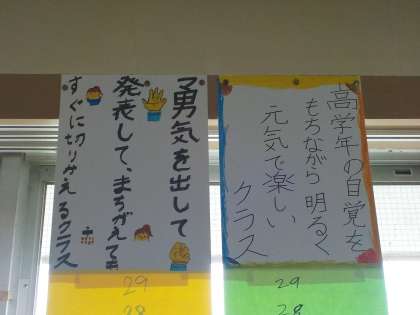 高学年の自覚を
もちながら 明るく
元気で楽しい
クラス
29
28
勇気を出して
発表して、まちがえても
すぐに切りかえるクラス
29
28